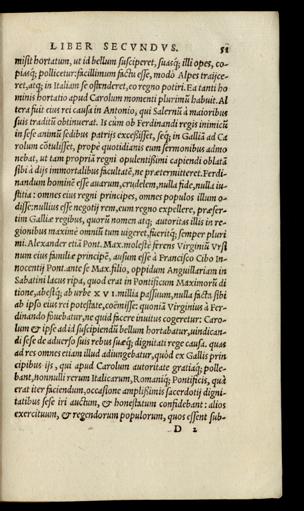 LIBER SECVNDVS. 51
misit hortatum, ut id bellum susciperet, suasq; illi opes, co-
piasq; pollicetur: facillimum factu esse, modò Alpes traijce-
ret, atq; in Italiam se ostenderet, eo regno potiri. Ea tanti ho
minis hortatio apud Carolum momenti plurimũ habuit. Al
tera fuit eius rei causa in Antonio, qui Salernũ à maioribus
suis traditũ obtinuerat. Is cum ob Ferdinandi regis inimicũ
in sese animũ sedibus patrijs excessisset, seq; in Galliã ad Ca
rolum cõtulisset, propè quotidianis eum sermonibus admo
nebat, ut tam propriã regni opulentissimi capiendi oblatã
sibi à dijs immortalibus facultatẽ, ne prætermitteret. Ferdi-
nandum hominẽ esse auarum, crudelem, nulla fide, nulla iu-
stitia: omnes eius regni principes, omnes populos illum o-
disse: nullius esse negotij rem, eum regno expellere, præser-
tim Galliæ regibus, quorũ nomen atq; autoritas illis in re-
gionibus maximè omniũ tum uigeret, fueritq; semper pluri
mi. Alexander etiã Pont. Max. molestè ferens Virginiũ Vrsi
num eius familiæ principẽ, ausum esse à Francisco Cibo In-
nocentij Pont. ante se Max. filio, oppidum Anguillariam in
Sabatini lacus ripa, quod erat in Pontificum Maximorũ di
tione, abestq; ab urbe XVI. millia passuum, nulla facta sibi
ab ipso eius rei potestate, coëmisse: quoniã Virginius à Fer-
dinando fouebatur, ne quid facere inuitus cogeretur: Caro-
lum & ipse ad id suscipiendũ bellum hortabatur, uindican-
di sese de aduerso suis rebus suæq; dignitati rege causa. quas
ad res omnes etiam illud adiungebatur, quòd ex Gallis prin
cipibus ij, qui apud Carolum autoritate gratiaq; polle-
bant, nonnulli rerum Italicarum, Romaniq; Pontificis, quà
erat iter faciendum, occasione amplissimis sacerdotij digni-
tatibus sese iri auctum, & honestatum confidebant: alios
exercituum, & regendorum populorum, quos essent sub-
D 2